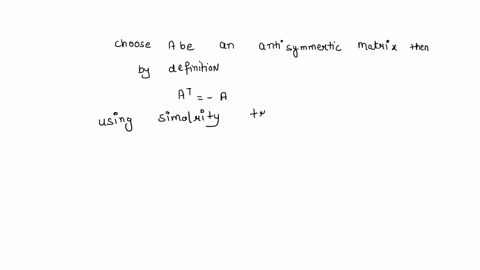 choose A be an antisymmertic matrix then
by definition
Aᵀ = - A
using simalrity tr